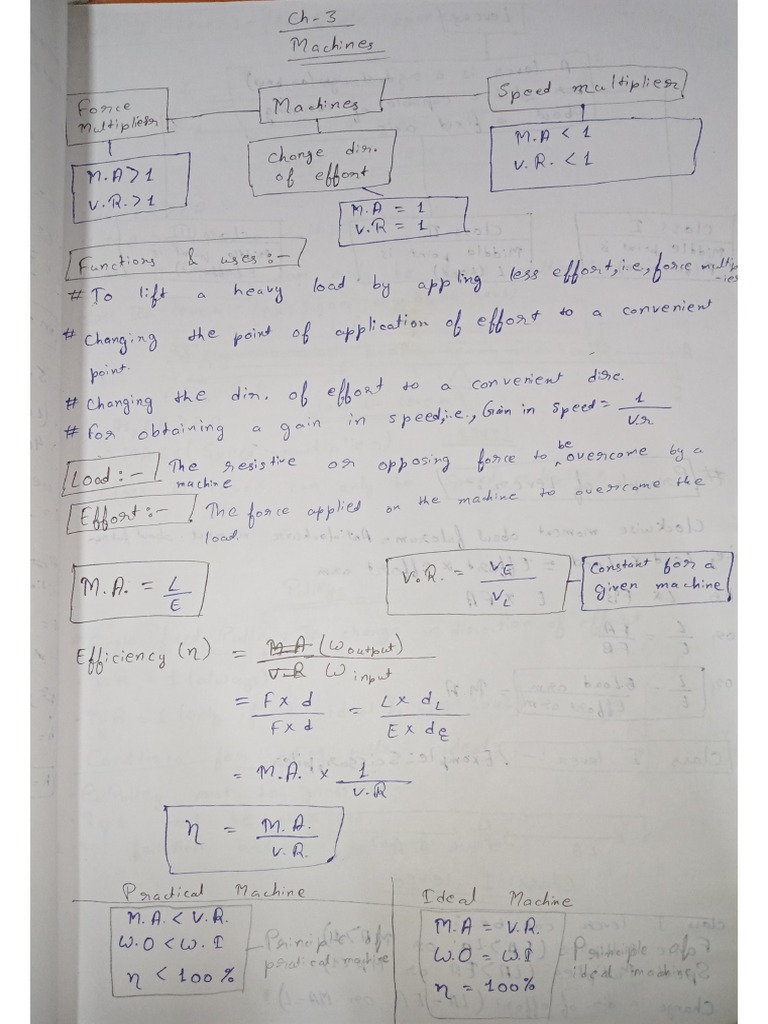 Ch-3
Machines
Force Multiplier
Machines
Speed multiplier
M.A > 1
V.R. > 1
Change dir. of effort
M.A < 1
V.R. < 1
M.A = 1
V.R = 1
Functions & uses :-
# To lift a heavy load by appling less effort, i.e., force multip
-ier
# Changing the point of application of effort to a convenient
point.
# Changing the dir. of effort to a convenient dirc.
# For obtaining a gain in speed, i.e., Gain in speed = 1/Vr
Load :- The resistive or opposing force to be overcome by a
machine
Effort :- The force applied on the machine to overcome the
load.
M.A. = L/E
V.R. = VE/VL
Constant for a
given machine
Efficiency (η) = M.A (W output) / V.R W input
= F x d / F x d = L x dL / E x dE
= M.A. x 1 / V.R
η = M.A. / V.R.
Practical Machine
Ideal Machine
M.A. < V.R.
W.O < W.I
η < 100%
Principle of
pratical machine
M.A = V.R.
W.O = W.I
η = 100%
ideal machine